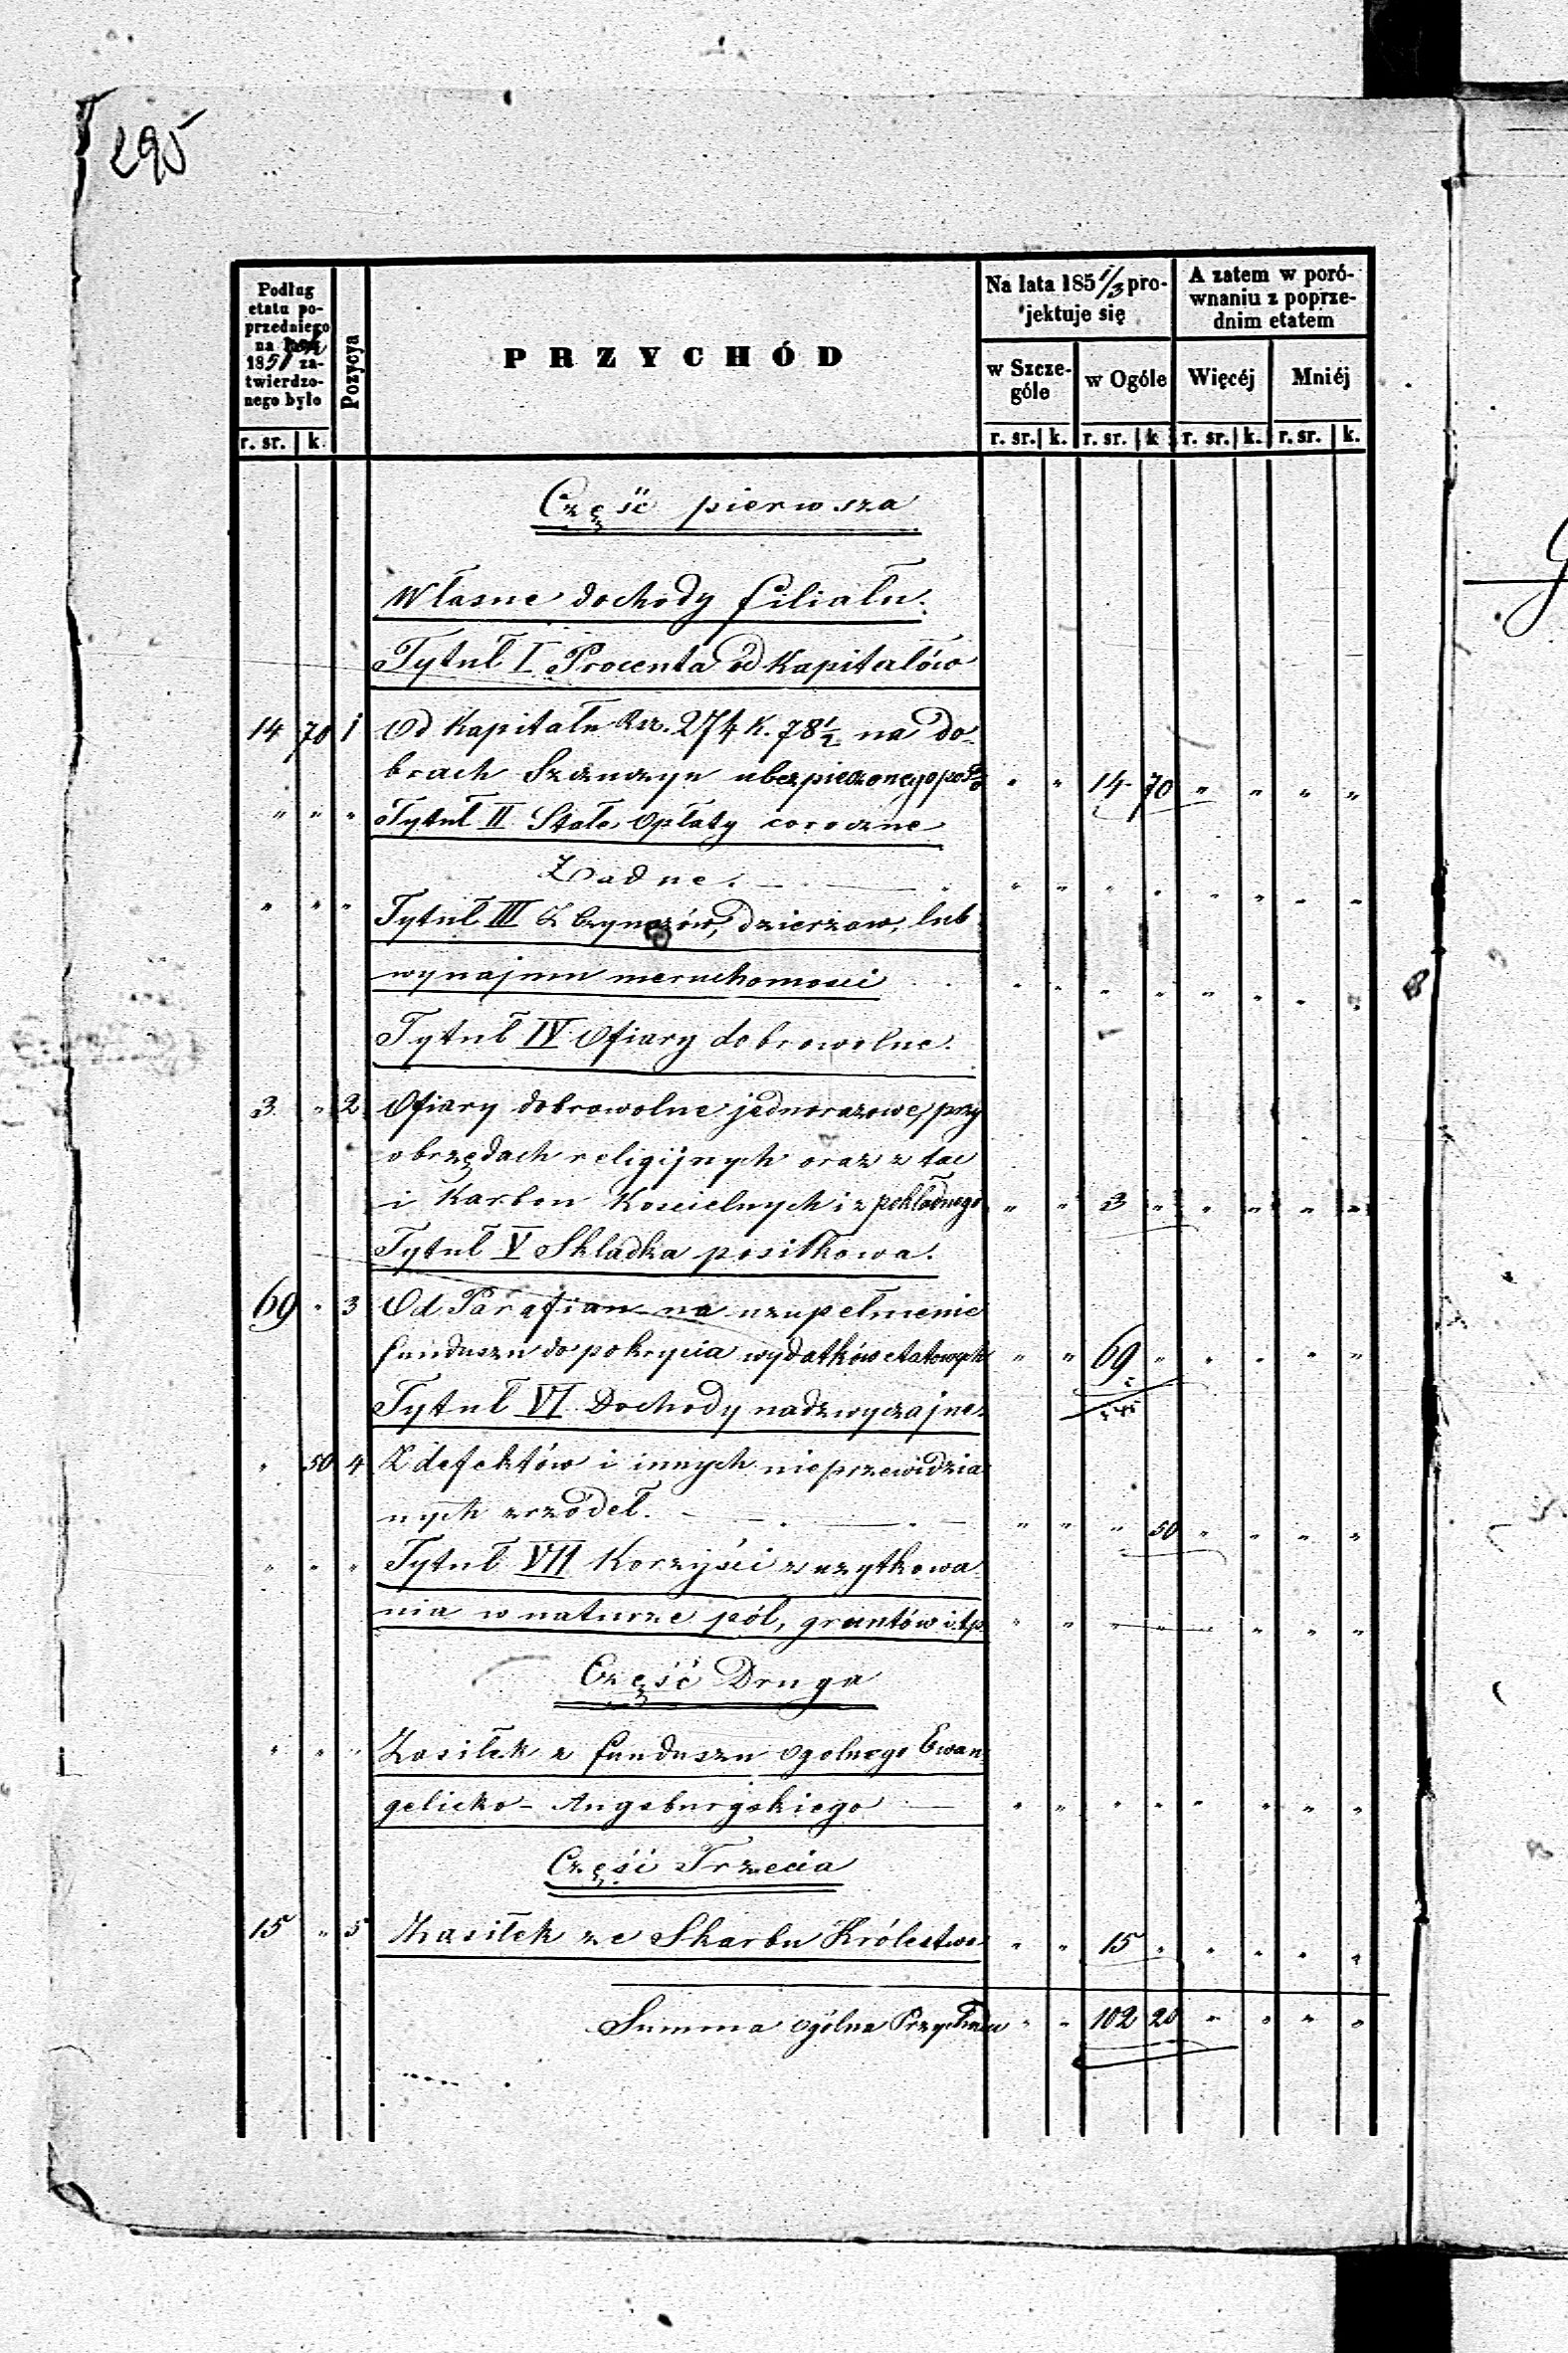 295
Podług etatu poprzedniego na 1851 zatwierdzonego było
Pozycya
PRZYCHÓD
Na lata 185 1/3 projektuje się
A zatem w porównaniu z poprzednim etatem
w Szczególe
w Ogóle
Więcéj
Mniéj
r. sr. k. r. sr. k. r. sr. k. r. sr. k. r. sr. k.
Część pierwsza
Własne dochody filiału.
Tytuł I Procenta od Kapitałów
14 70 1 Od Kapitału Rsr. 274 K. 78 1/2 na do-
brach Szczuczyn ubezpieczonego po 14 70
" " " Tytuł II Stałe Opłaty coroczne
Żadne. " " " " " " " "
" " " Tytuł III Z Czynszów, dzierżaw, lub
wynajmu nieruchomosci " " " " " " " "
Tytuł IV Ofiary dobrowolne.
3 " 2 Ofiary dobrowolne jednorazowe, przy
obrzędach religijnych oraz z tac
i Karbon Koscielnych i z pokładnego " " 3 " " " " "
Tytuł V Składka posiłkowa.
69 " 3 Od Parafian na uzupełnienie
funduszu do pokrycia wydatków etatowych " " 69 " " " " "
Tytuł VI Dochody nadzwyczajne
" 50 4 Z defektów i innych nieprzewidzia
nych zrzódeł. " " " 50 " " " "
" " " Tytuł VII Korzyści z uzytkowa
nia w naturze pól, gruntów i.t.p. " " " " " " " "
Część Druga
" " " Zasiłek z funduszu ogolnego Ewan-
gelicko-Augsburgskiego " " " " " " " "
Część Trzecia
15 " 5 Zasiłek ze Skarbu Królestwa " " 15 " " " " "
Summa ogólna Przychodu " " 102 20 " " " "